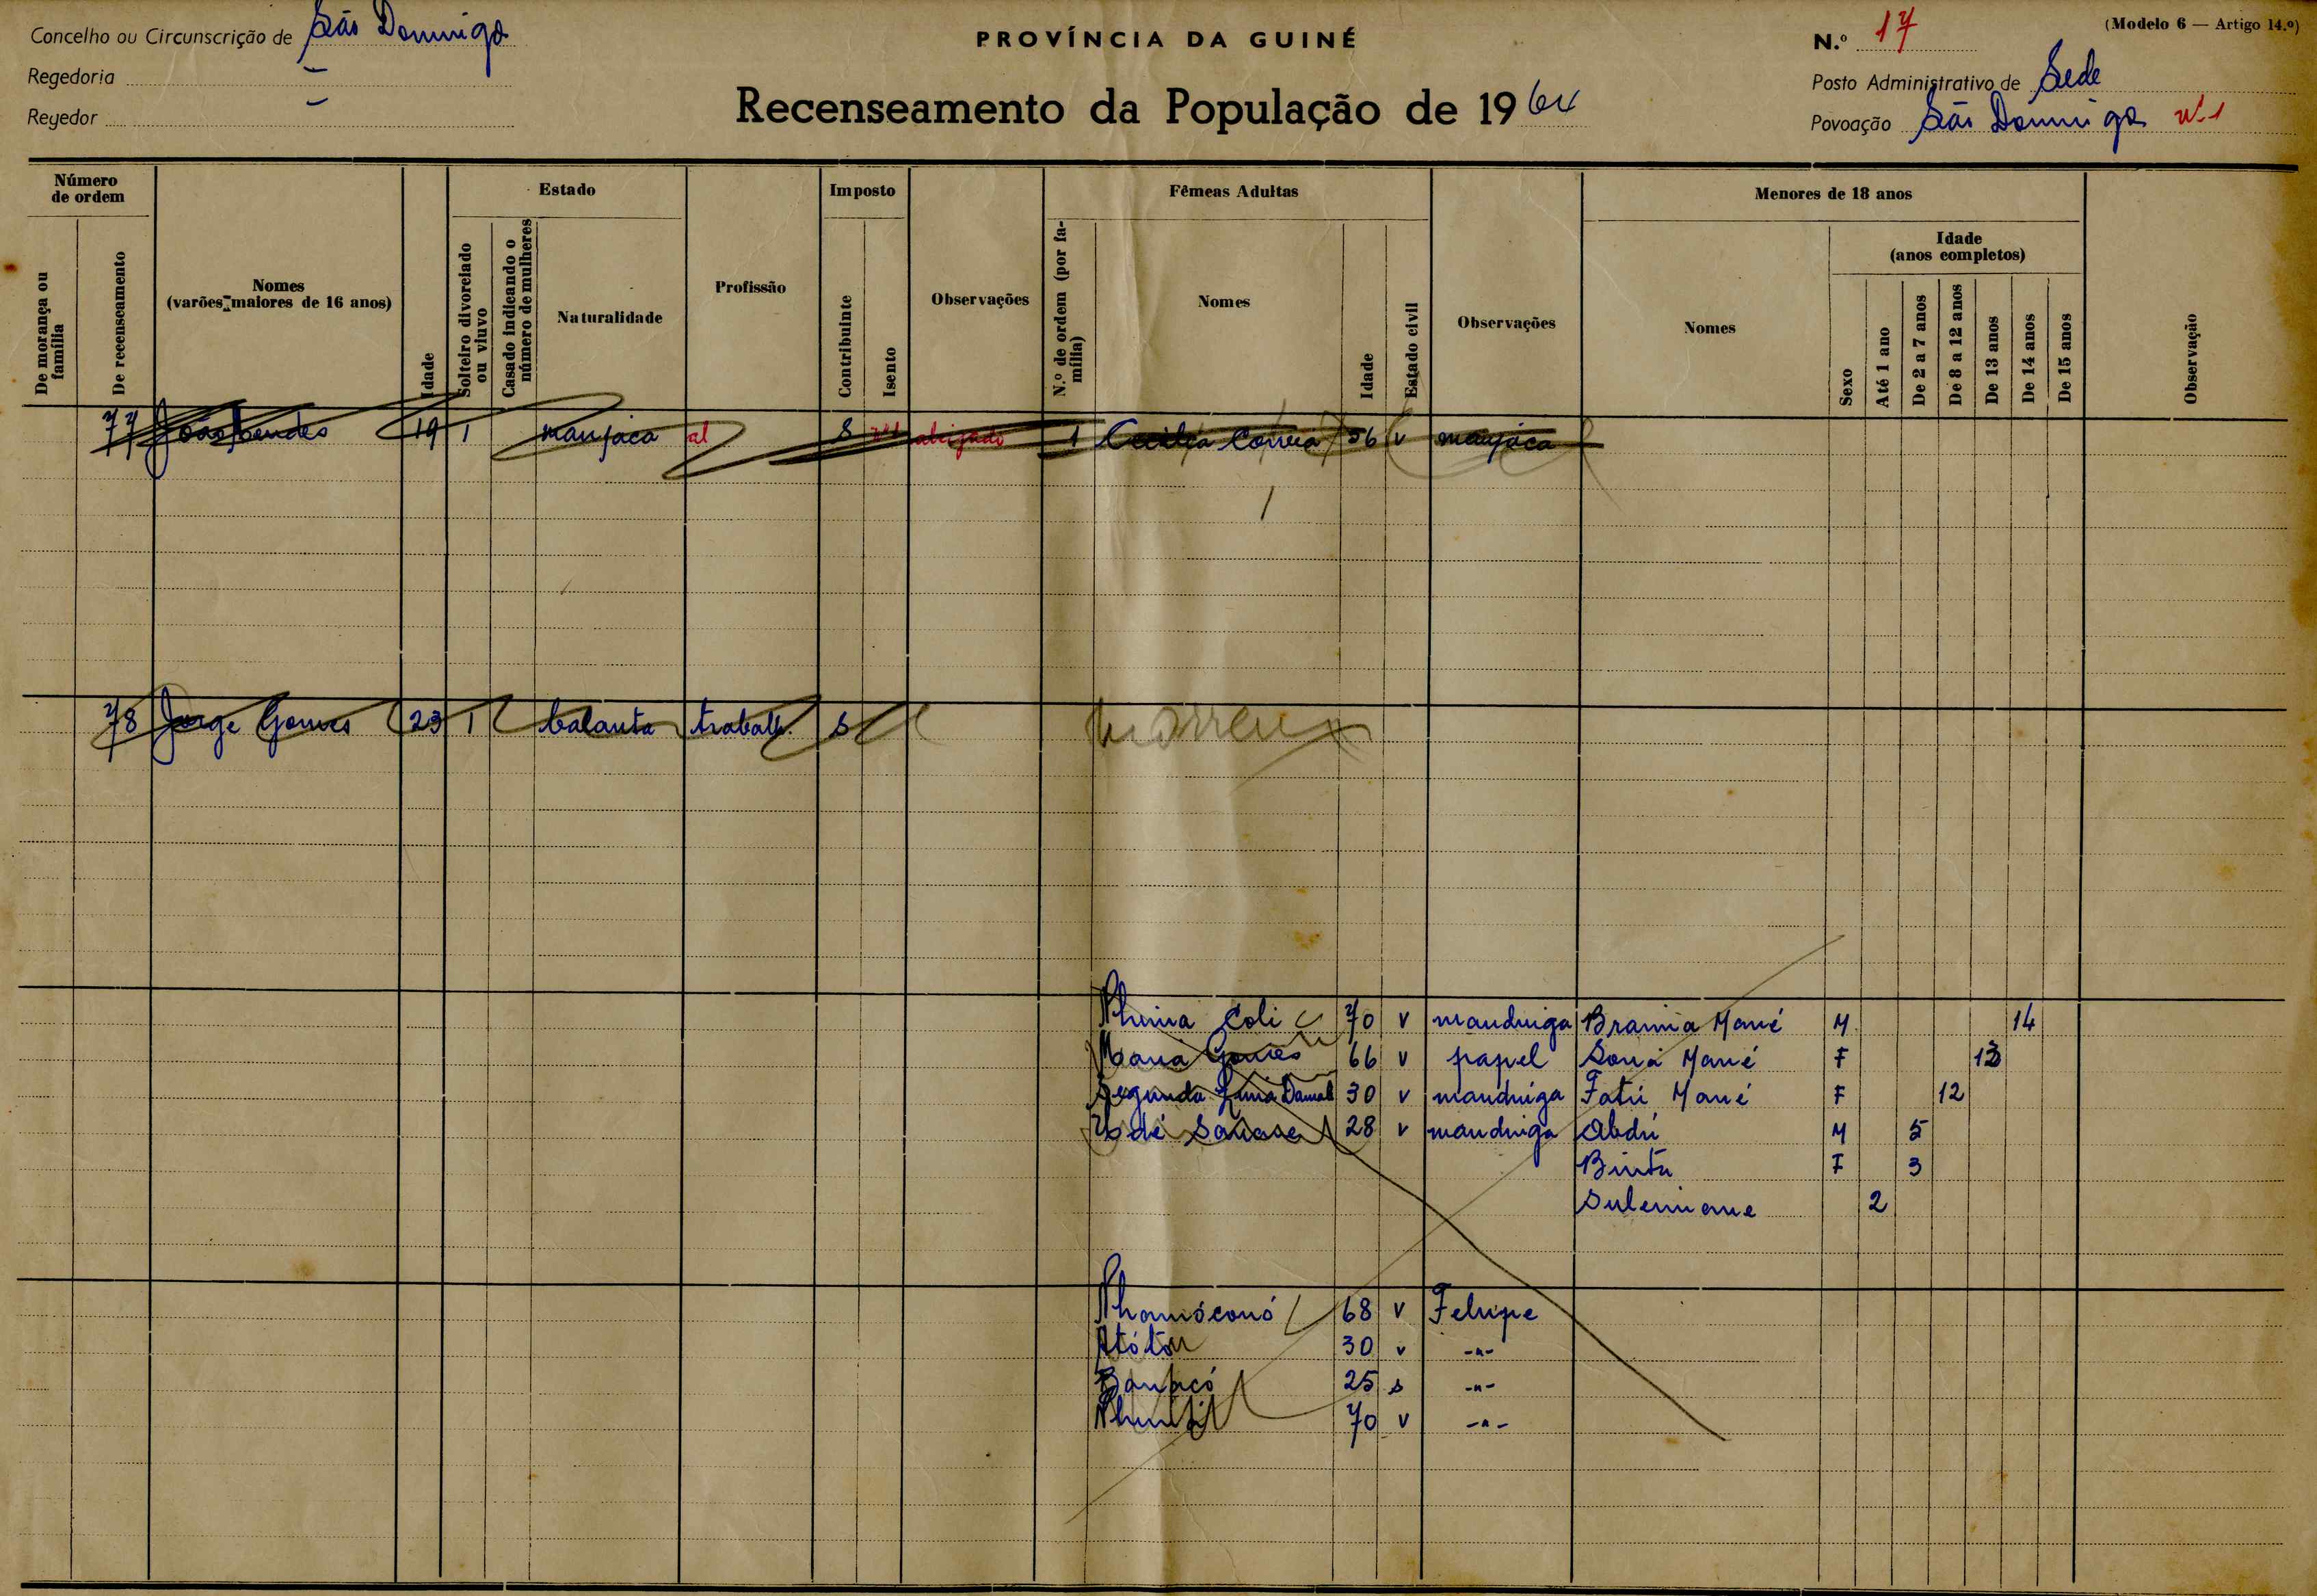 Concelho ou Circunscrição de São Domingos
PROVÍNCIA DA GUINÉ
N.º 17
(Modelo 6 — Artigo 14.º)
Regedoria —
Posto Administrativo de Sede
Regedor —
Recenseamento da População de 1964
Povoação São Domingos nº 1
Número de ordem
De morança ou família
De recenseamento
Nomes
(varões maiores de 16 anos)
Idade
Estado
Solteiro divorciado ou viuvo
Casado indicando o número de mulheres
Naturalidade
Profissão
Imposto
Contribuinte
Isento
Observações
Fêmeas Adultas
N.º de ordem (por família)
Nomes
Idade
Estado civil
Observações
Menores de 18 anos
Nomes
Sexo
Idade
(anos completos)
Até 1 ano
De 2 a 7 anos
De 8 a 12 anos
De 13 anos
De 14 anos
De 15 anos
Observação
77 João Mendes 19 1 manjaca al S aleijado 1 Cecilia Correia 56 v manjaca
78 Jorge Gomes 23 1 balanta trabalh. S morreu
Nhima Coli 70 v mandinga Brama Mané M 14
Maria Gomes 66 v papel Soná Mané F 13
Segunda 30 v mandinga Fatú Mané F 12
28 v mandinga Abdú M 5
Bintú F 3
Sulemane 2
68 v Felupe
30 v -"-
25 s -"-
70 v -"-